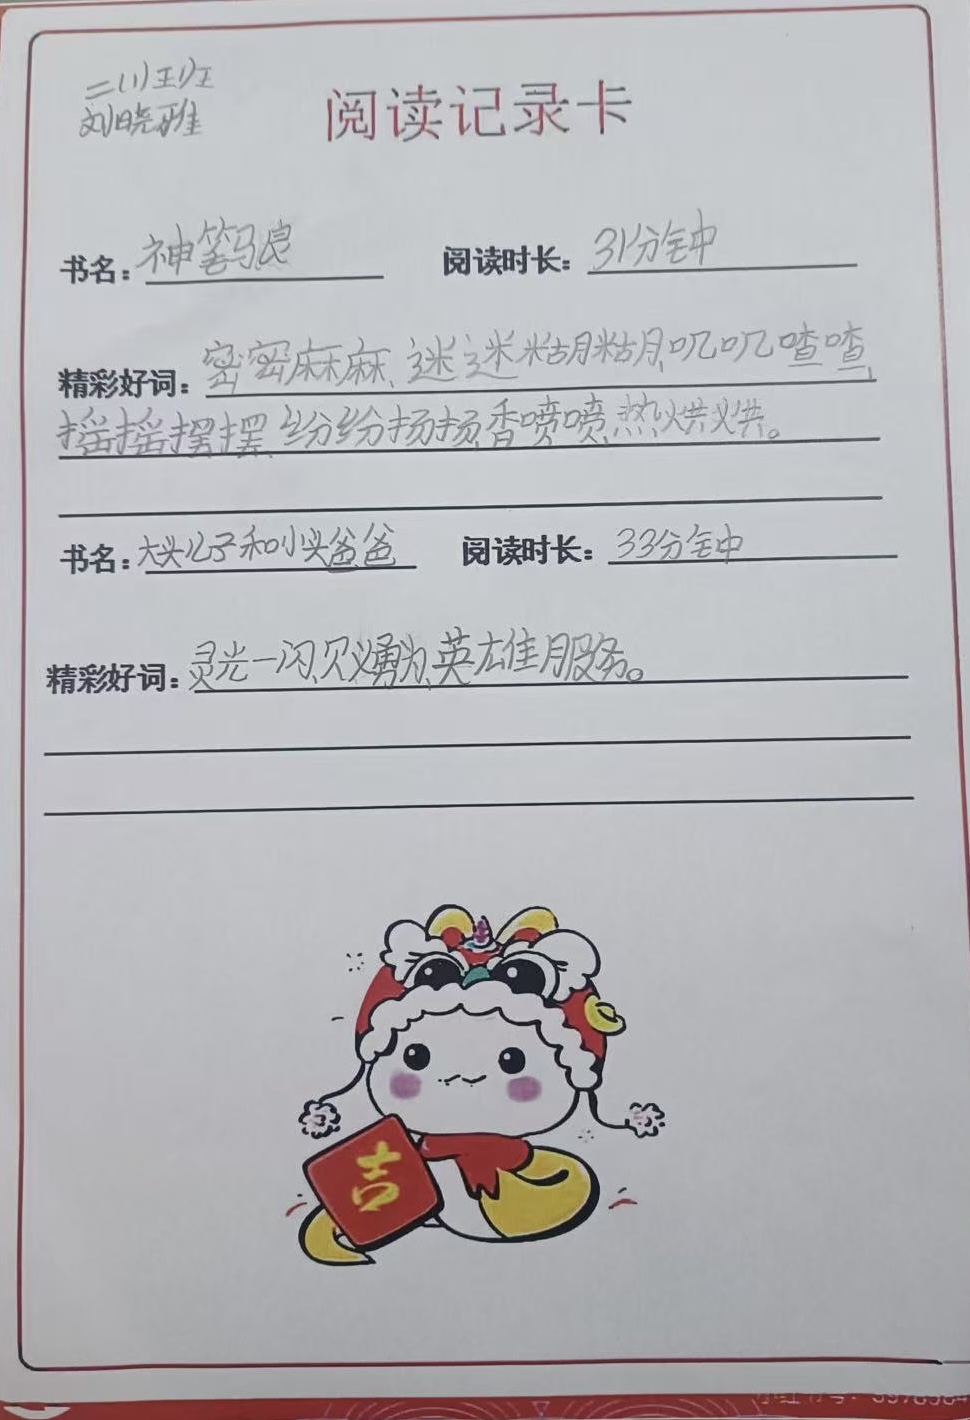 二(1)班
刘晓雅
阅读记录卡
书名：神笔马良 阅读时长：31分钟
精彩好词：密密麻麻、迷迷糊糊、叽叽喳喳、
摇摇摆摆、纷纷扬扬、香喷喷、热烘烘。
书名：大头儿子和小头爸爸 阅读时长：33分钟
精彩好词：灵光一闪、见义勇为、英雄、服务。
吉